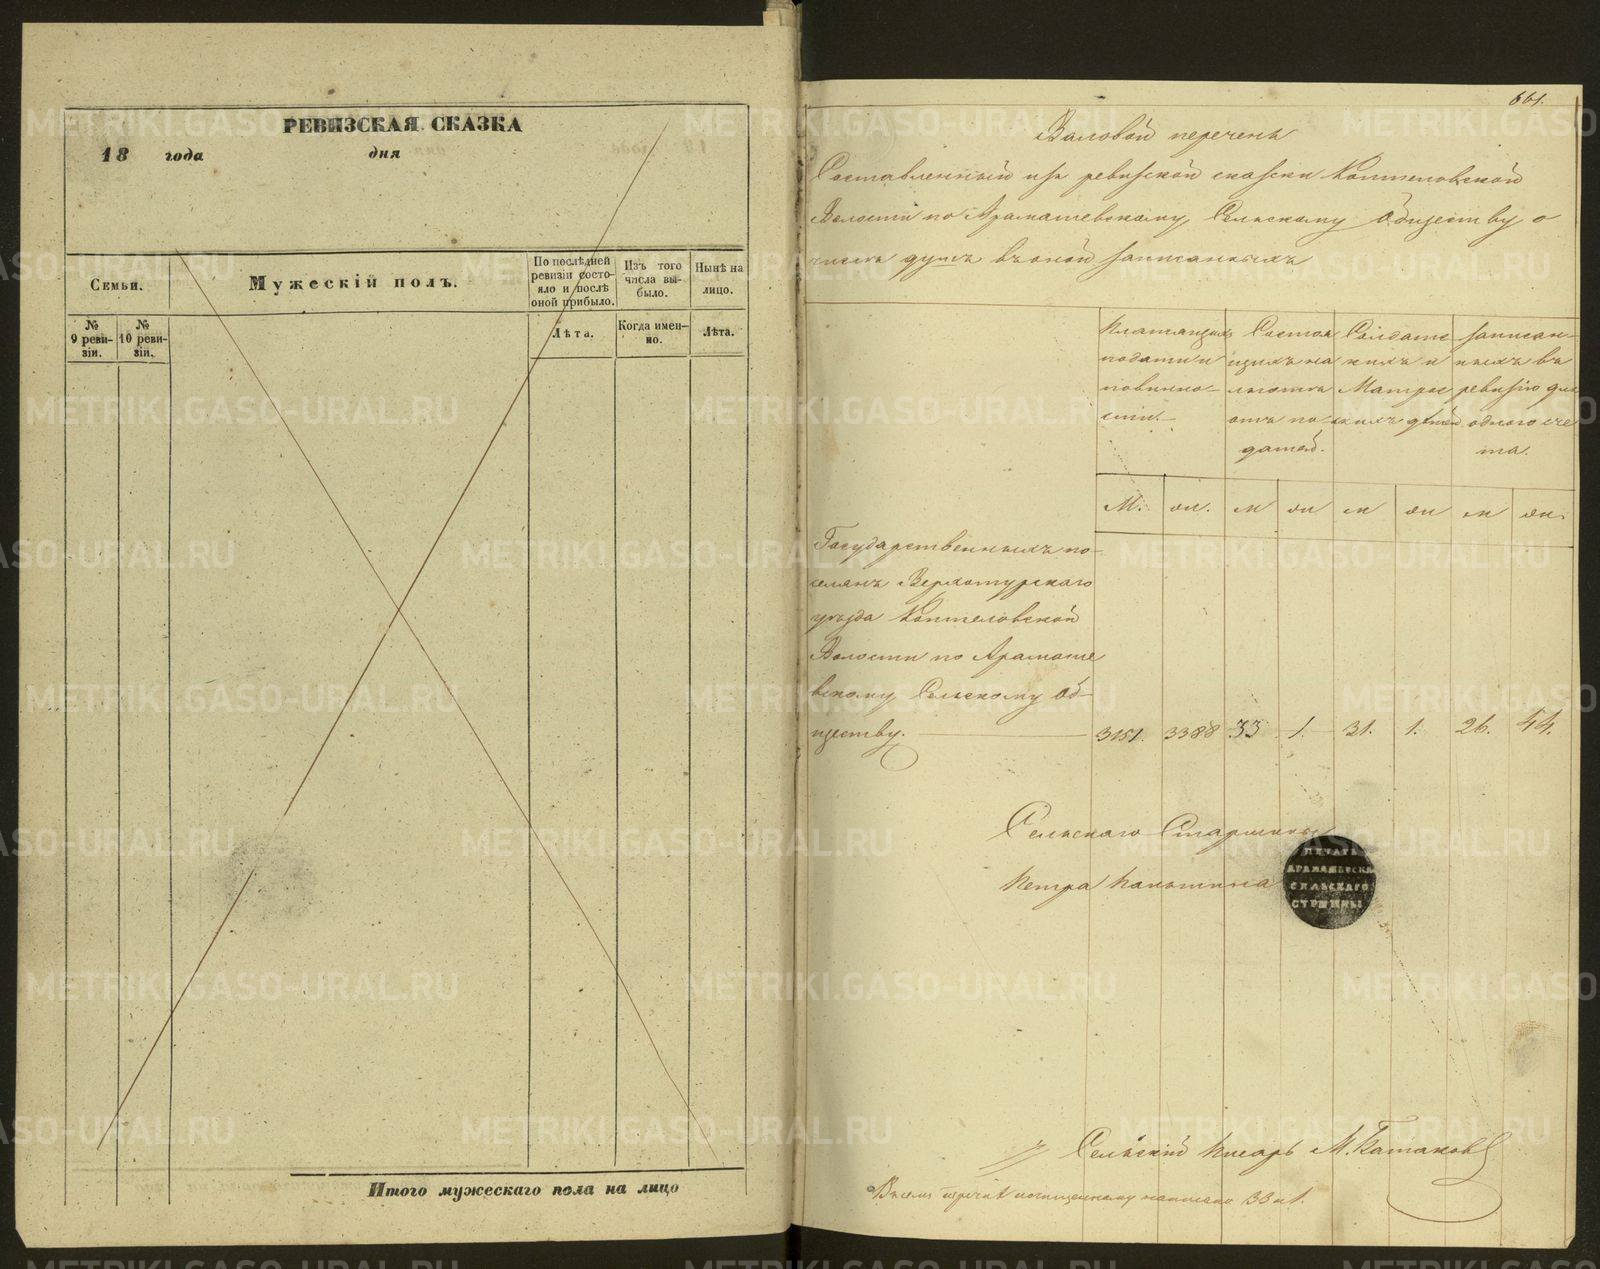 РЕВИЗСКАЯ СКАЗКА
18 года дня
Семьи.
Мужескій полъ.
По последней
ревизіи состо-
яло и послѣ
оной прибыло.
Изъ того
числа вы-
было.
Нынѣ на
лицо.
№
9 реви-
зіи.
№
10 реви-
зіи.
Лѣта.
Когда имен-
но.
Лѣта.
Итого мужескаго пола на лицо
661.
Валовой перечень
Составленный изъ ревизской сказки Коптеловской
Волости по Арамашевскому Сельскому Обществу о
числѣ душъ въ оной записанныхъ
Платящихъ
подати и
повинно-
сти.
Состоя
щихъ на
льготѣ
отъ по-
датей.
Солдатс
кихъ и
Матрос
скихъ детей
записан-
ныхъ въ
ревизію для
одного сче
та.
М. ж. м ж м ж м ж.
Государственныхъ по-
селянъ Верхотурскаго
уѣзда Коптеловской
Волости по Арамаше
вскому Сельскому Об-
ществу. 3151. 3388 33 1. 31. 1. 26. 44.
Сельскаго Старшины
Петра
ПЕЧАТЬ
АРАМАШЕВСКА
СЕЛЬСКАГО
СТРШИНЫ
Сельскій писарь М.
написано 33 и 1.
METRIKI.GASO-URAL.RU